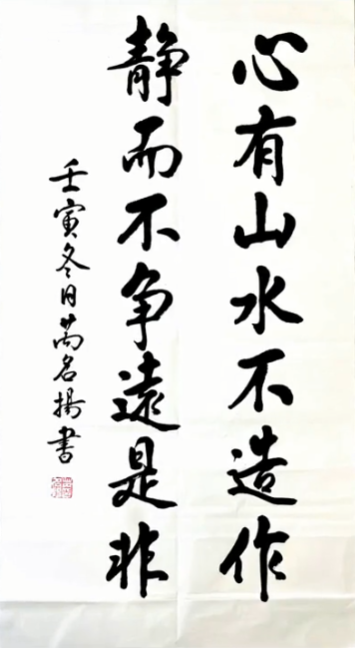 心有山水不造作
静而不争遠是非
壬寅冬日万名揚書